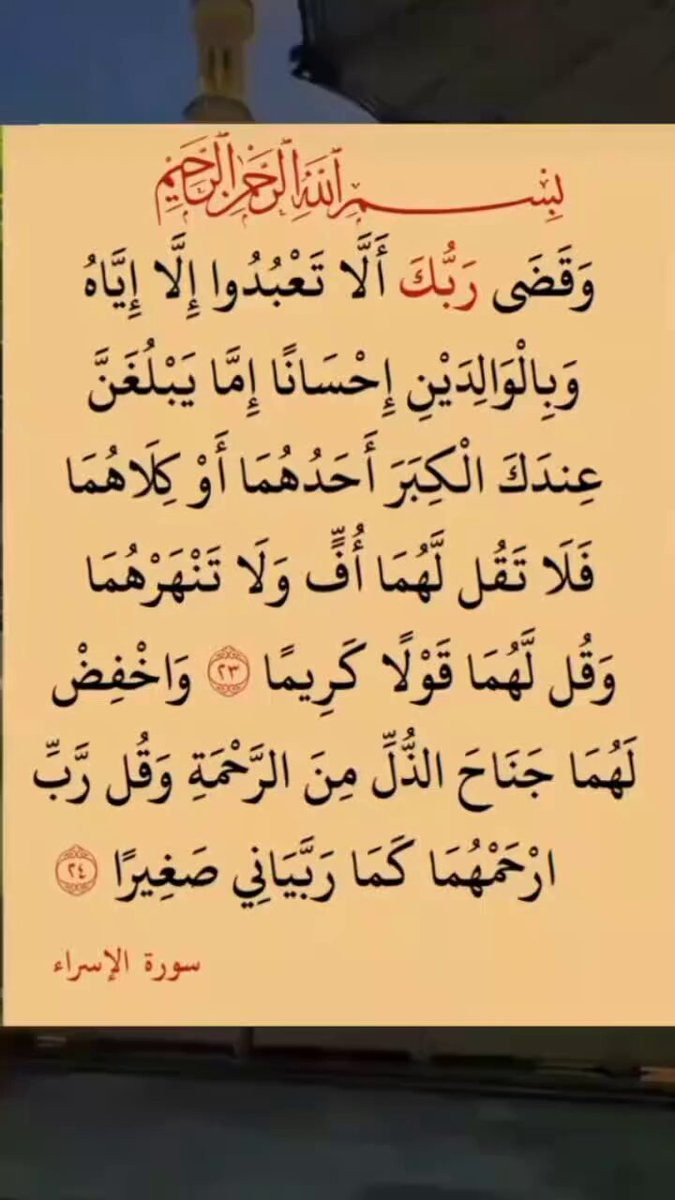 بِسْمِ اللَّهِ الرَّحْمَٰنِ الرَّحِيمِ
وَقَضَى رَبُّكَ أَلَّا تَعْبُدُوا إِلَّا إِيَّاهُ
وَبِالْوَالِدَيْنِ إِحْسَانًا إِمَّا يَبْلُغَنَّ
عِندَكَ الْكِبَرَ أَحَدُهُمَا أَوْ كِلَاهُمَا
فَلَا تَقُل لَّهُمَا أُفٍّ وَلَا تَنْهَرْهُمَا
وَقُل لَّهُمَا قَوْلًا كَرِيمًا ٢٣ وَاخْفِضْ
لَهُمَا جَنَاحَ الذُّلِّ مِنَ الرَّحْمَةِ وَقُل رَّبِّ
ارْحَمْهُمَا كَمَا رَبَّيَانِي صَغِيرًا ٢٤
سورة الإسراء